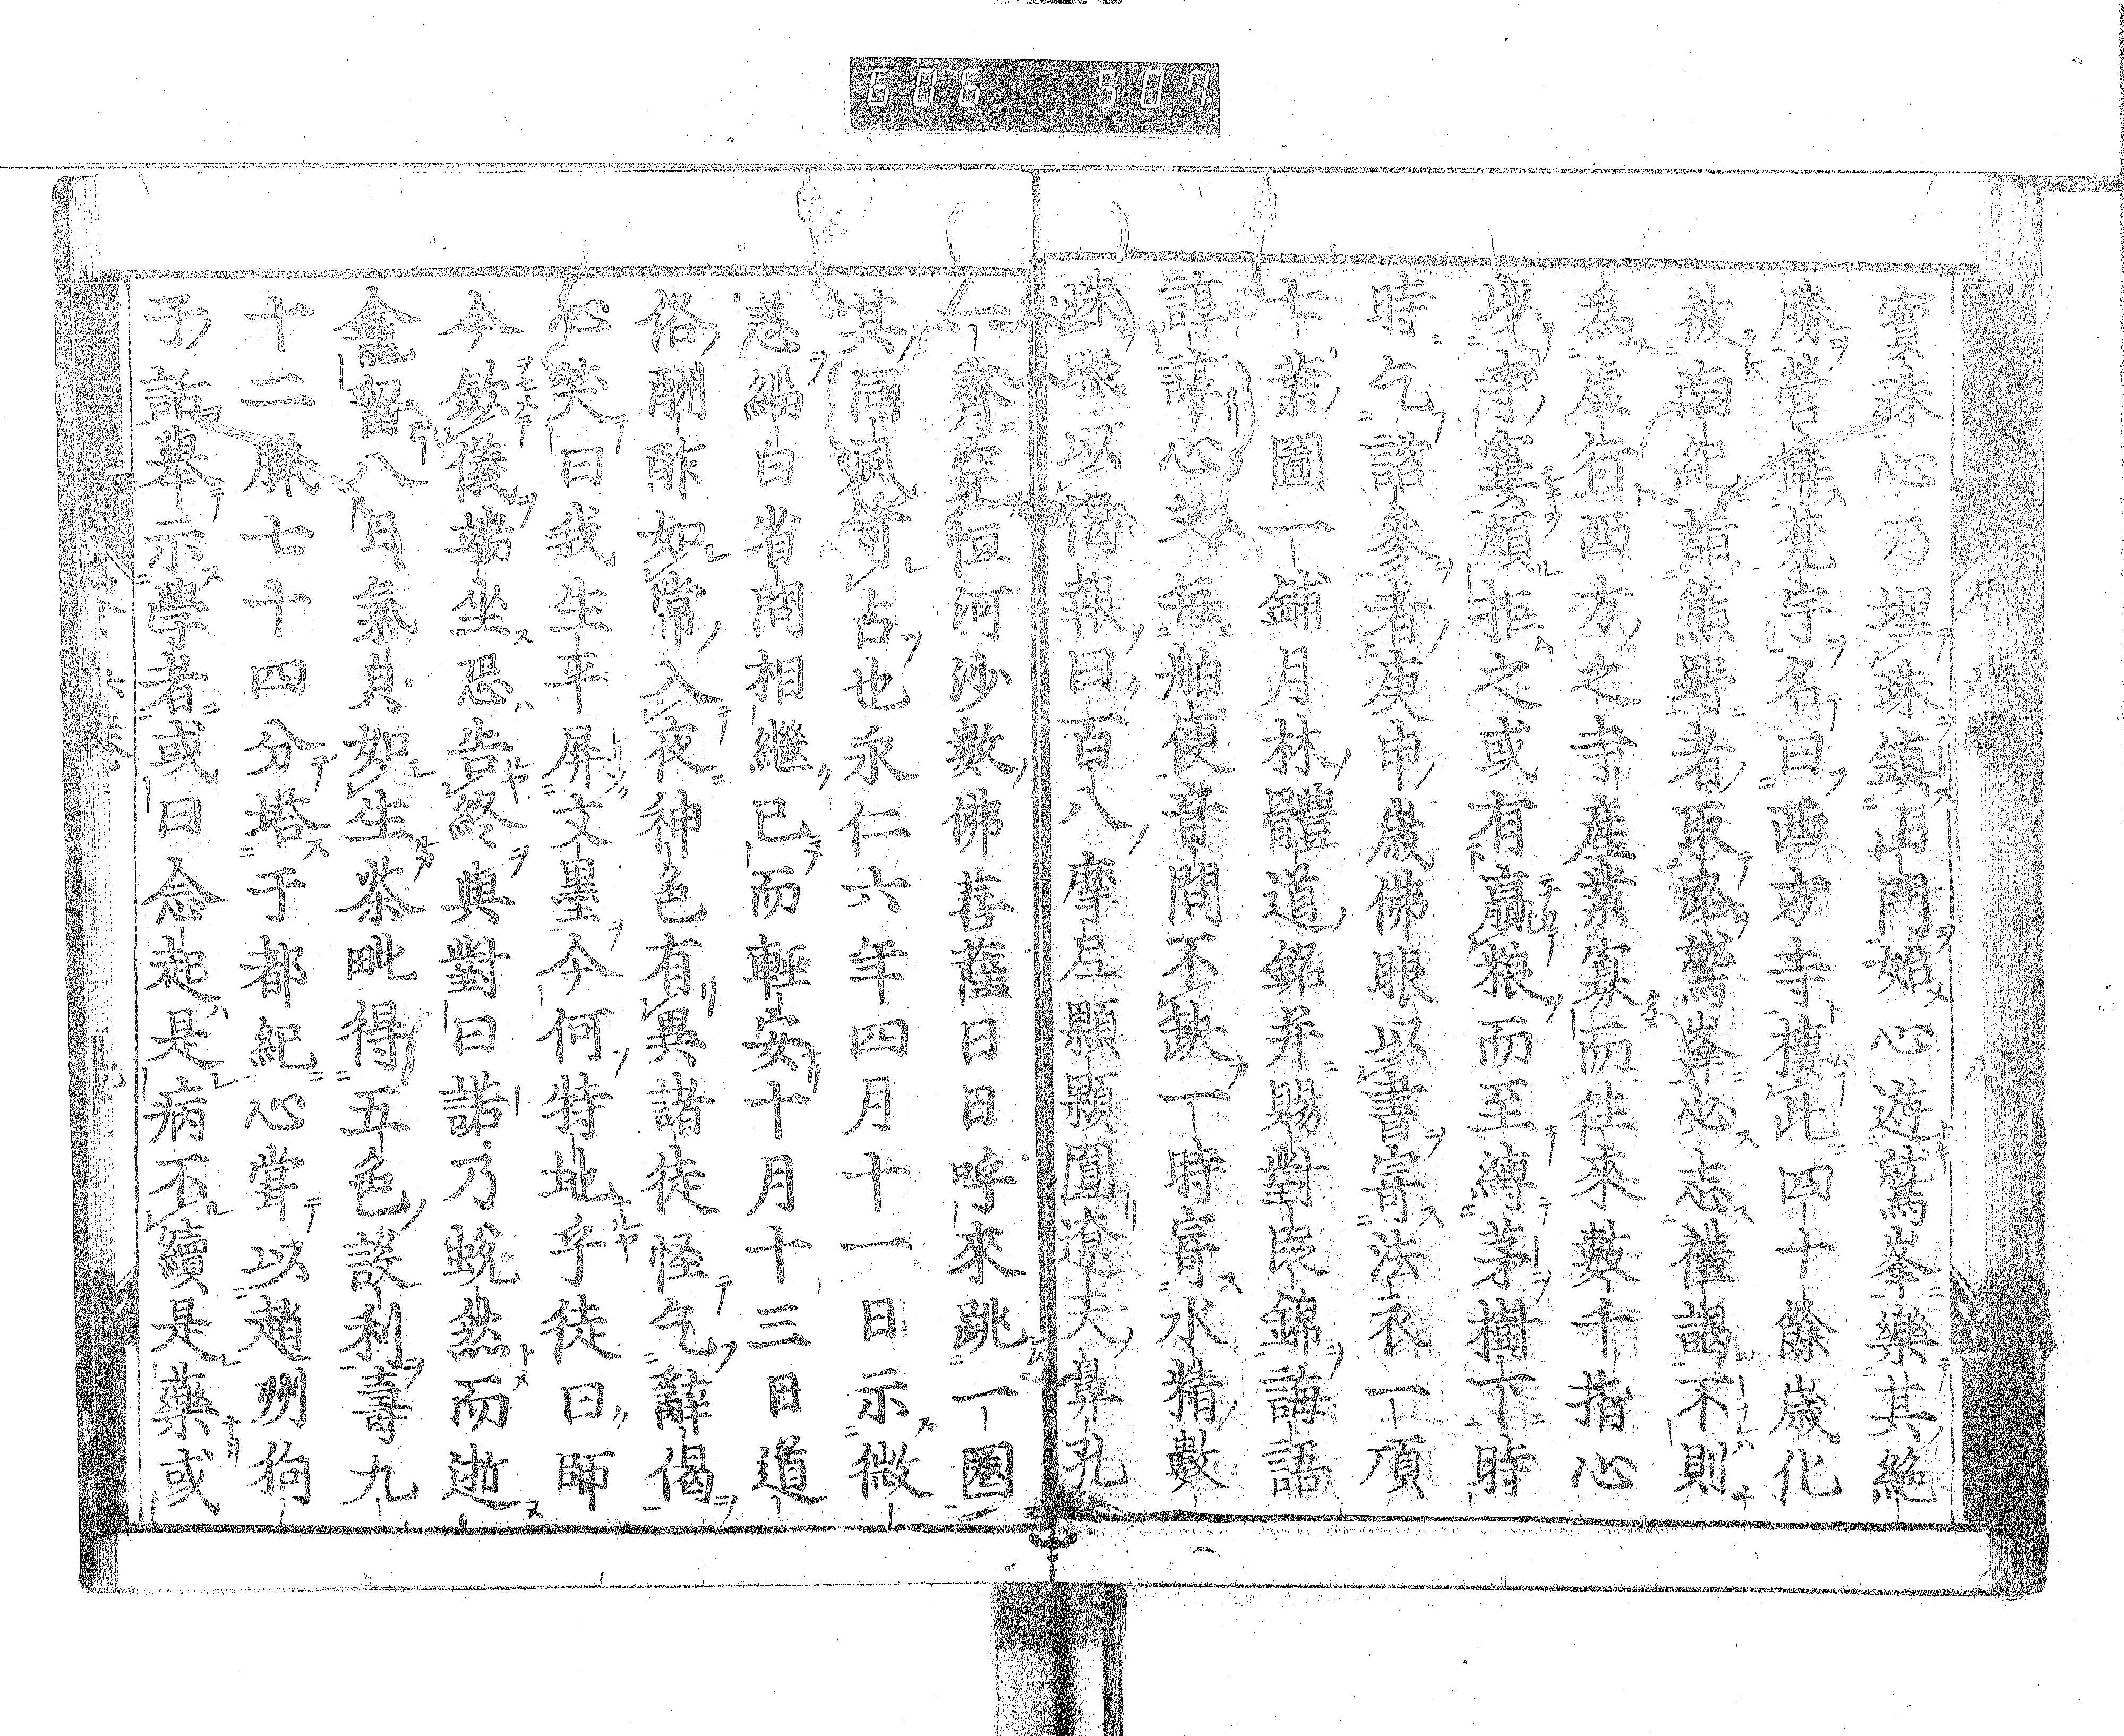 606 507
寳珠心乃埋珠鎮山門始心遊鷲峯樂其絶
勝營搆梵宇名曰西方寺棲此四十餘歳化
被南紀詣熊野者取路鷲峯必志禮謁不則
為虚行西方之寺産業寡而徃來數千指心
寺窶頗拒之或有贏粮而至縛茅樹下時
時乞諮參者庚申歳佛眼以書寄法衣一項
七葉圖一鋪月林體道銘并賜對民錦誨語
諄諄心
毎舶便音問不缺一時寄水精數
珠以酋報曰百八摩尼顆顆圓遼天鼻孔
一齊穿恒河沙數佛菩薩日日呼來跳一圏
其同風可占也永仁六年四月十一日示微
恙緇白省問相繼已而輕安十月十三日道
俗酬酢如常入夜神色有異諸徒怪乞辭偈
心笑曰我生平屏文墨今何特地乎徒曰師
今斂儀端坐恐告終與對曰諾乃蛻然而逝
龕留八日氣貞如生茶毗得五色設利壽九
十二臘七十四分塔于都紀心甞以趙州狗
子話舉示學者或曰念起是病不續是藥或